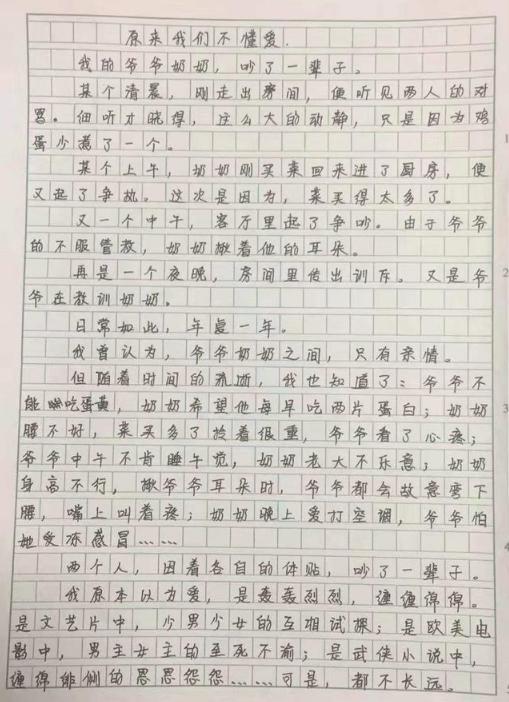 原来我们不懂爱.
我的爷爷奶奶，吵了一辈子。
某个清晨，刚走出房间，便听见两人的对
骂。细听才晓得，这么大的动静，只是因为鸡
蛋少煮了一个。
某个上午，奶奶刚买菜回来进了厨房，便
又起了争执。这次是因为，菜买得太多了。
又一个中午，客厅里起了争吵。由于爷爷
的不服管教，奶奶揪着他的耳朵。
再是一个夜晚，房间里传出训斥。又是爷
爷在教训奶奶。
日常如此，年复一年。
我曾认为，爷爷奶奶之间，只有亲情。
但随着时间的流逝，我也知道了：爷爷不
能吃蛋黄，奶奶希望他每早吃两片蛋白；奶奶
腰不好，菜买多了拎着很重，爷爷看了心疼；
爷爷中午不肯睡午觉，奶奶老大不乐意；奶奶
身高不行，揪爷爷耳朵时，爷爷都会故意弯下
腰，嘴上叫着疼；奶奶晚上爱打空调，爷爷怕
她受冻感冒……
两个人，因着各自的体贴，吵了一辈子。
我原本以为爱，是轰轰烈烈，缠缠绵绵。
是文艺片中，少男少女的互相试探；是欧美电
影中，男主女主的至死不渝；是武侠小说中，
缠绵悱恻的恩恩怨怨……可是，都不长远。
1
2
3
4